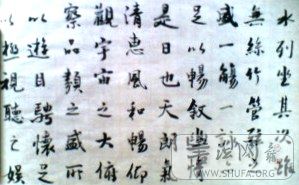 水列坐其次雖
無絲竹管弦之
盛一觴一詠
足以暢敘幽情
是日也天朗氣
清惠風和暢仰
觀宇宙之大俯
察品類之盛所
以遊目騁懷足
以極視聽之娛
WWW.SHUFA.ORG